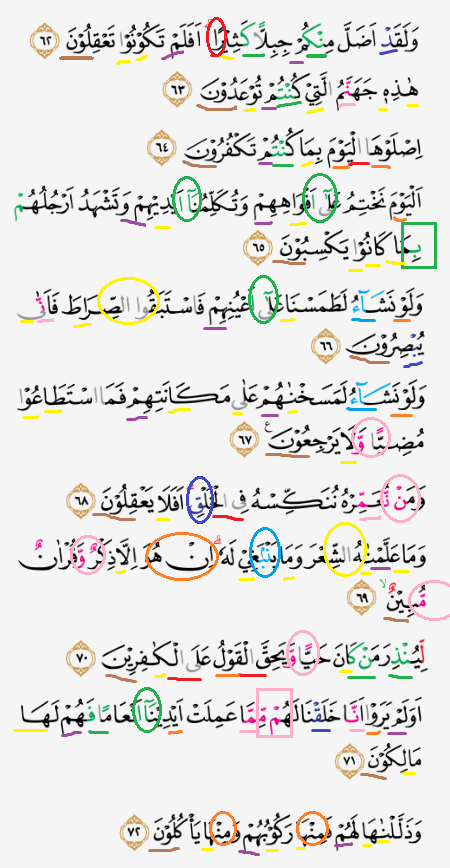 وَلَقَدْ اَضَلَّ مِنْكُمْ جِبِلًّا كَثِيْرًاۗ اَفَلَمْ تَكُوْنُوْا تَعْقِلُوْنَ ٦٢
هٰذِهٖ جَهَنَّمُ الَّتِيْ كُنْتُمْ تُوْعَدُوْنَ ٦٣
اِصْلَوْهَا الْيَوْمَ بِمَا كُنْتُمْ تَكْفُرُوْنَ ٦٤
اَلْيَوْمَ نَخْتِمُ عَلٰٓى اَفْوَاهِهِمْ وَتُكَلِّمُنَآ اَيْدِيْهِمْ وَتَشْهَدُ اَرْجُلُهُمْ
بِمَا كَانُوْا يَكْسِبُوْنَ ٦٥
وَلَوْ نَشَاۤءُ لَطَمَسْنَا عَلٰٓى اَعْيُنِهِمْ فَاسْتَبَقُوا الصِّرَاطَ فَاَنّٰى
يُبْصِرُوْنَ ٦٦
وَلَوْ نَشَاۤءُ لَمَسَخْنٰهُمْ عَلٰى مَكَانَتِهِمْ فَمَا اسْتَطَاعُوْا
مُضِيًّا وَّلَا يَرْجِعُوْنَ ࣖ ٦٧
وَمَنْ نُّعَمِّرْهُ نُنَكِّسْهُ فِى الْخَلْقِۗ اَفَلَا يَعْقِلُوْنَ ٦٨
وَمَا عَلَّمْنٰهُ الشِّعْرَ وَمَا يَنْۢبَغِيْ لَهٗ ۗاِنْ هُوَ اِلَّا ذِكْرٌ وَّقُرْاٰنٌ
مُّبِيْنٌ ۙ ٦٩
لِّيُنْذِرَ مَنْ كَانَ حَيًّا وَّيَحِقَّ الْقَوْلُ عَلَى الْكٰفِرِيْنَ ٧٠
اَوَلَمْ يَرَوْا اَنَّا خَلَقْنَا لَهُمْ مِّمَّا عَمِلَتْ اَيْدِيْنَآ اَنْعَامًا فَهُمْ لَهَا
مَالِكُوْنَ ٧١
وَذَلَّلْنٰهَا لَهُمْ فَمِنْهَا رَكُوْبُهُمْ وَمِنْهَا يَأْكُلُوْنَ ٧٢